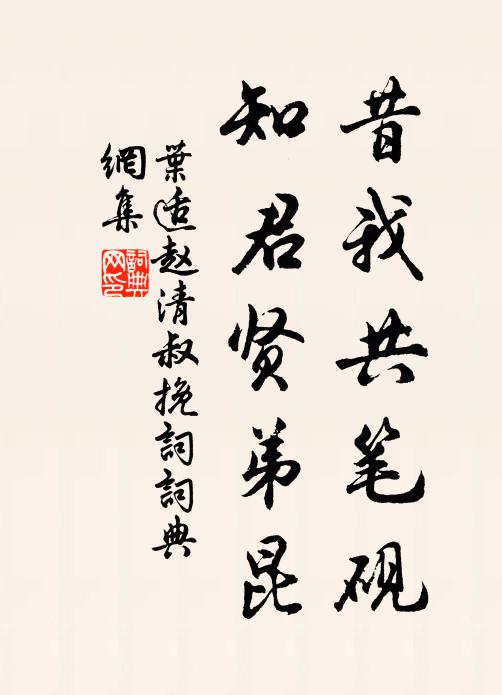 昔我共笔砚
知君贤弟昆
葉适赵清叔挽詞詞典
網集
詞典网印